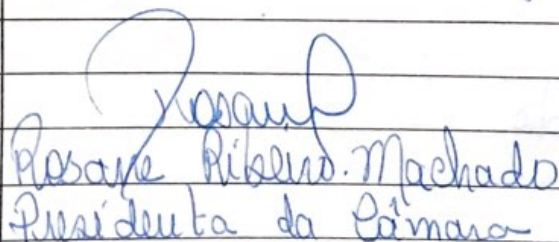 Rosane
Rosane Ribeiro. Machado
Presidenta da Câmara